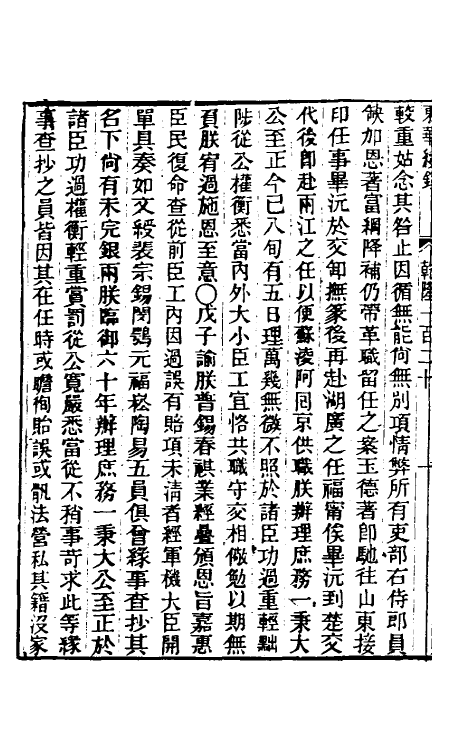 東華續錄 乾隆一百二十
較重姑念其咎止因循無能尚無別項情弊所有吏部右侍郎員
缺加恩著富綱降補仍帶革職留任之案玉德著即馳往山東接
印任事畢沅於交卸撫篆後再赴湖廣之任福寧俟畢沅到楚交
代後即赴兩江之任以便蘇淩阿囘京供職朕辦理庶務一秉大
公至正今已八旬有五日理萬幾無微不照於諸臣功過重輕黜
陟從公權衡悉當內外大小臣工宜恪共職守交相儆勉以期無
負朕宥過施恩至意〇戊子諭朕普錫春祺業經疊頒恩旨嘉惠
臣民復命查從前臣工內因過誤有賠項未清者經軍機大臣開
單具奏如文綬裴宗錫閔鶚元福崧陶易五員俱曾緣事查抄其
名下尚有未完銀兩朕臨御六十年辦理庶務一秉大公至正於
諸臣功過權衡輕重賞罰從公寬嚴悉當從不稍事苛求此等緣
事查抄之員皆因其在任時或瞻徇貽誤或骫法營私其籍沒家